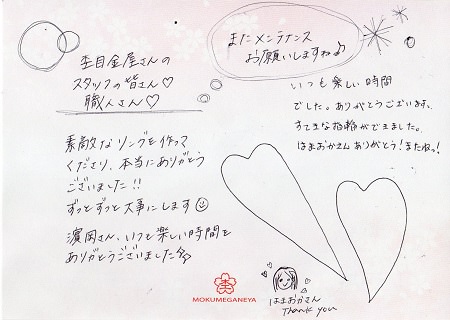 杢目金屋さんの
スタッフの皆さん♡
職人さん♡
素敵なリングを作って
くださり、本当にありがとう
ございました!!
ずっとずっと大事にします☺
濱岡さん、いつも楽しい時間を
ありがとうございました
またメンテナンス
お願いしますね♪
いつも楽しい時間
でした。ありがとうございます。
すてきな指輪ができました。
はまおかさんありがとう!またね。!
はまおかさん
Thank you
MOKUMEGANEYA